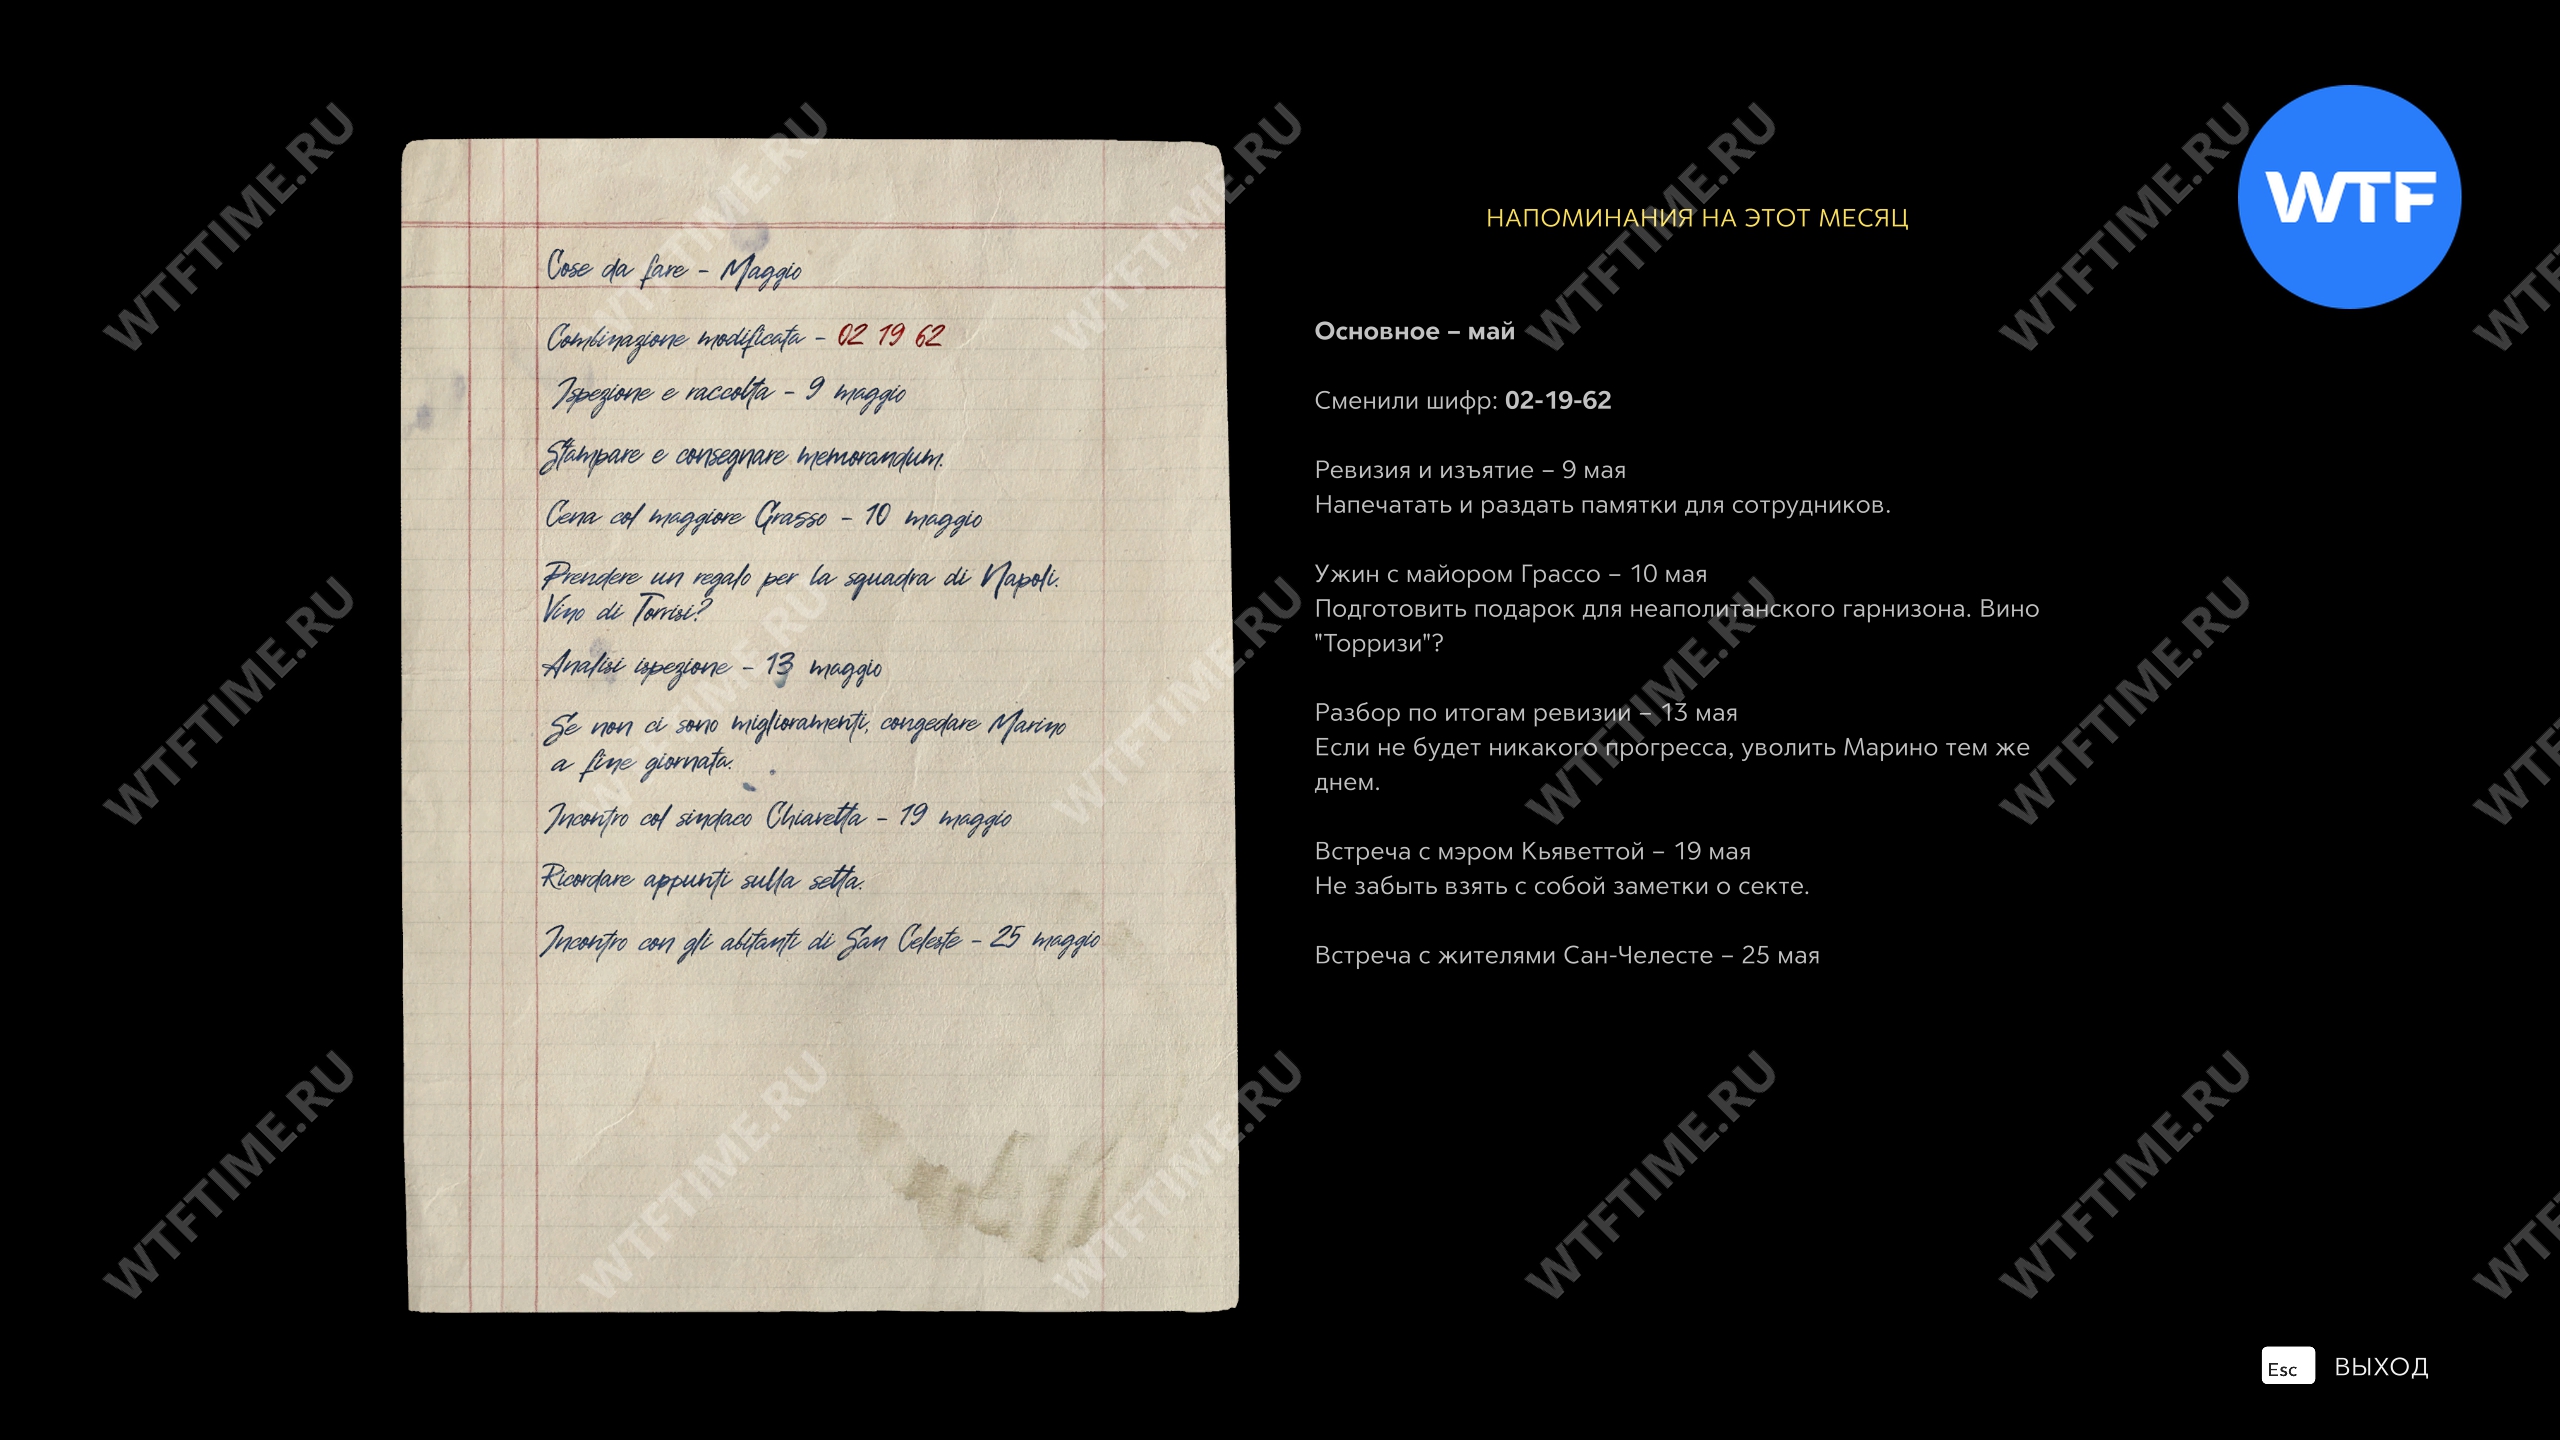 Cose da fare – Maggio
Combinazione modificata – 02 19 62
Ispezione e raccolta – 9 maggio
Stampare e consegnare memorandum.
Cena col maggiore Grasso – 10 maggio
Prendere un regalo per la squadra di Napoli.
Vino di Torrisi?
Analisi ispezione – 13 maggio
Se non ci sono miglioramenti, congedare Marino
a fine giornata.
Incontro col sindaco Chiavetta – 19 maggio
Ricordare appunti sulla setta.
Incontro con gli abitanti di San Celeste – 25 maggio
НАПОМИНАНИЯ НА ЭТОТ МЕСЯЦ
Основное – май
Сменили шифр: 02-19-62
Ревизия и изъятие – 9 мая
Напечатать и раздать памятки для сотрудников.
Ужин с майором Грассо – 10 мая
Подготовить подарок для неаполитанского гарнизона. Вино
"Торризи"?
Разбор по итогам ревизии – 13 мая
Если не будет никакого прогресса, уволить Марино тем же
днем.
Встреча с мэром Кьяветтой – 19 мая
Не забыть взять с собой заметки о секте.
Встреча с жителями Сан-Челесте – 25 мая
WTF
Esc ВЫХОД
WTFTIME.RU